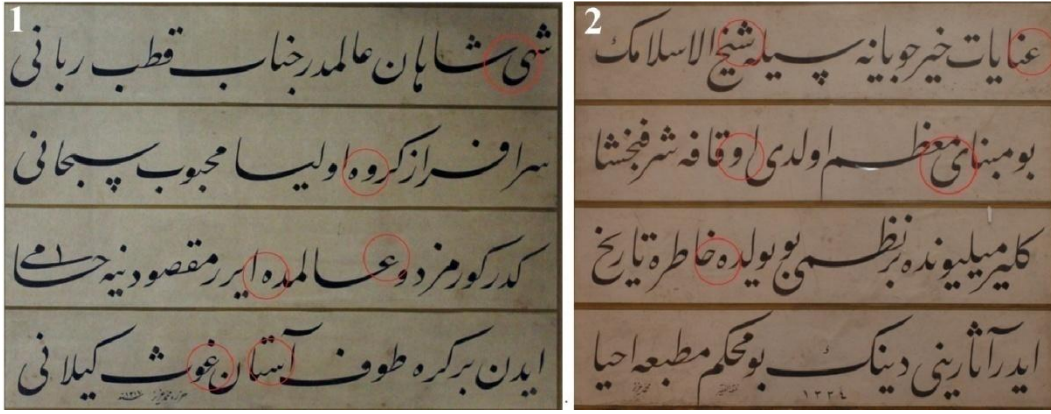 1
شهی شاهان عالمدر جناب قطب ربانی
سرافراز کروه اولیا محبوب سبحانی
کدر کورمز دو عالمده ایرر مقصودینه حامی
ایدن برکره طوف آستان غوث کیلانی
2
عنایات خیرجویانه سیله شیخ الاسلامک
بو مبنای معظم اولدی اوقافه شرفبخشا
کلیر میلیونده بر نظمی بو یولده خاطره تاریخ
ایدر آثارینی دینک بو محکم مطبعه احیا
١٣٣٤